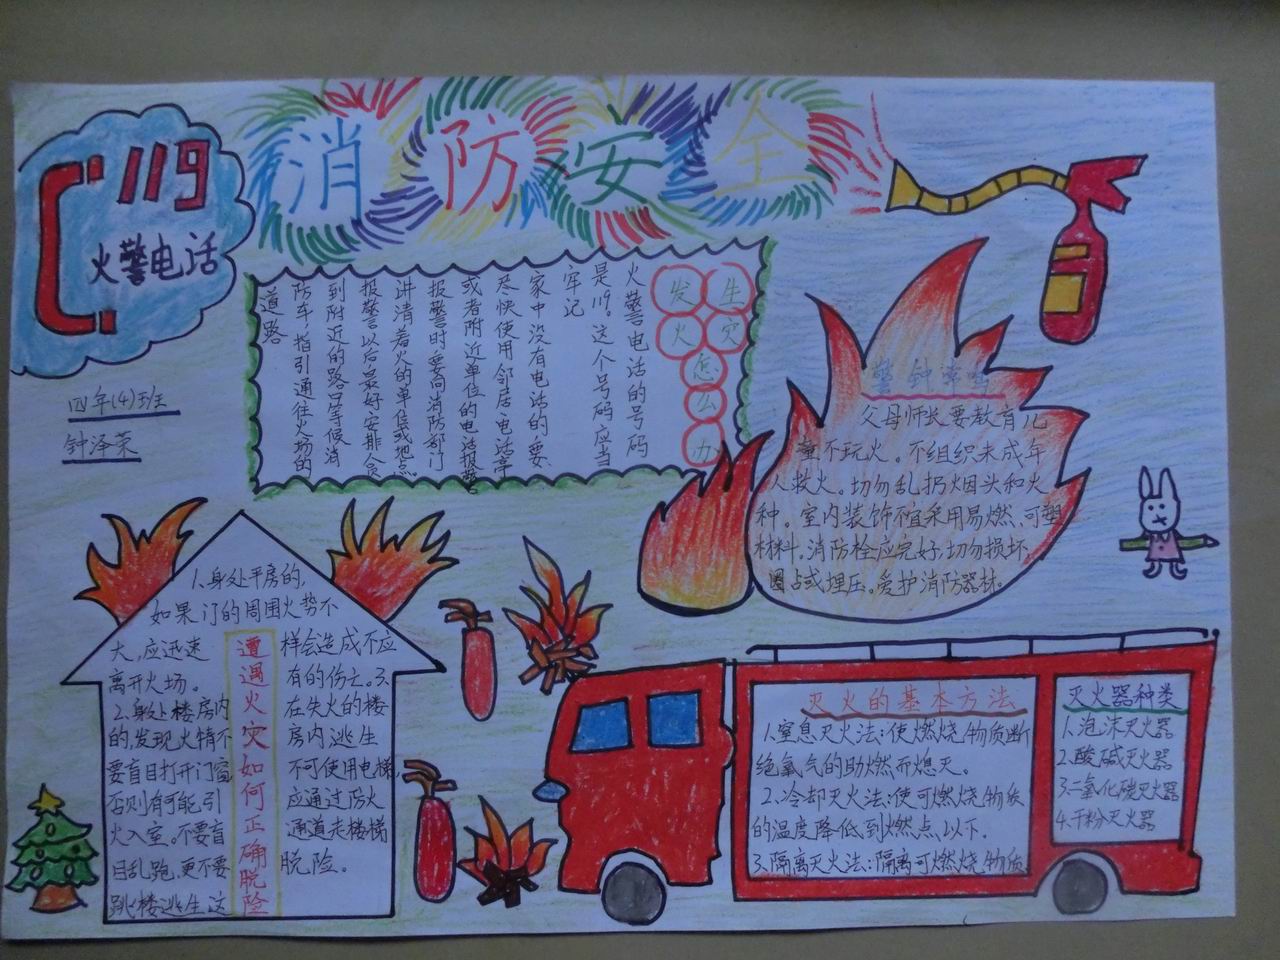 消防安全
119
火警电话
四年(4)班
钟泽荣
发生
火灾
怎
么
办
火警电话的号码
是119。这个号码应当
牢记
家中没有电话的要
尽快使用邻居电话亭
或者附近单位的电话报警
报警时要向消防部门
讲清着火的单位或地点
报警以后最好安排人员
到附近的路口等候消
防车，指引通往火场的
道路
警钟常鸣
父母师长要教育儿
童不玩火。不组织未成年
人救火。切勿乱扔烟头和火
种。室内装饰不宜采用易燃、可塑
材料。消防栓应完好,切勿损坏、
圈占或埋压。爱护消防器材。
遭遇火灾如何正确脱险
1.身处平房的,
如果门的周围火势不
大,应迅速
离开火场。
2.身处楼房内
的,发现火情不
要盲目打开门窗
否则有可能引
火入室。不要盲
目乱跑,更不要
跳楼逃生这
样会造成不应
有的伤亡。3.
在失火的楼
房内逃生
不可使用电梯,
应通过防火
通道走楼梯
脱险。
灭火的基本方法
1.窒息灭火法:使燃烧物质断
绝氧气的助燃而熄灭。
2.冷却灭火法:使可燃烧物质
的温度降低到燃点以下.
3.隔离灭火法:隔离可燃烧物质
灭火器种类
1.泡沫灭火器
2.酸碱灭火器
3.二氧化碳灭火器
4.干粉灭火器